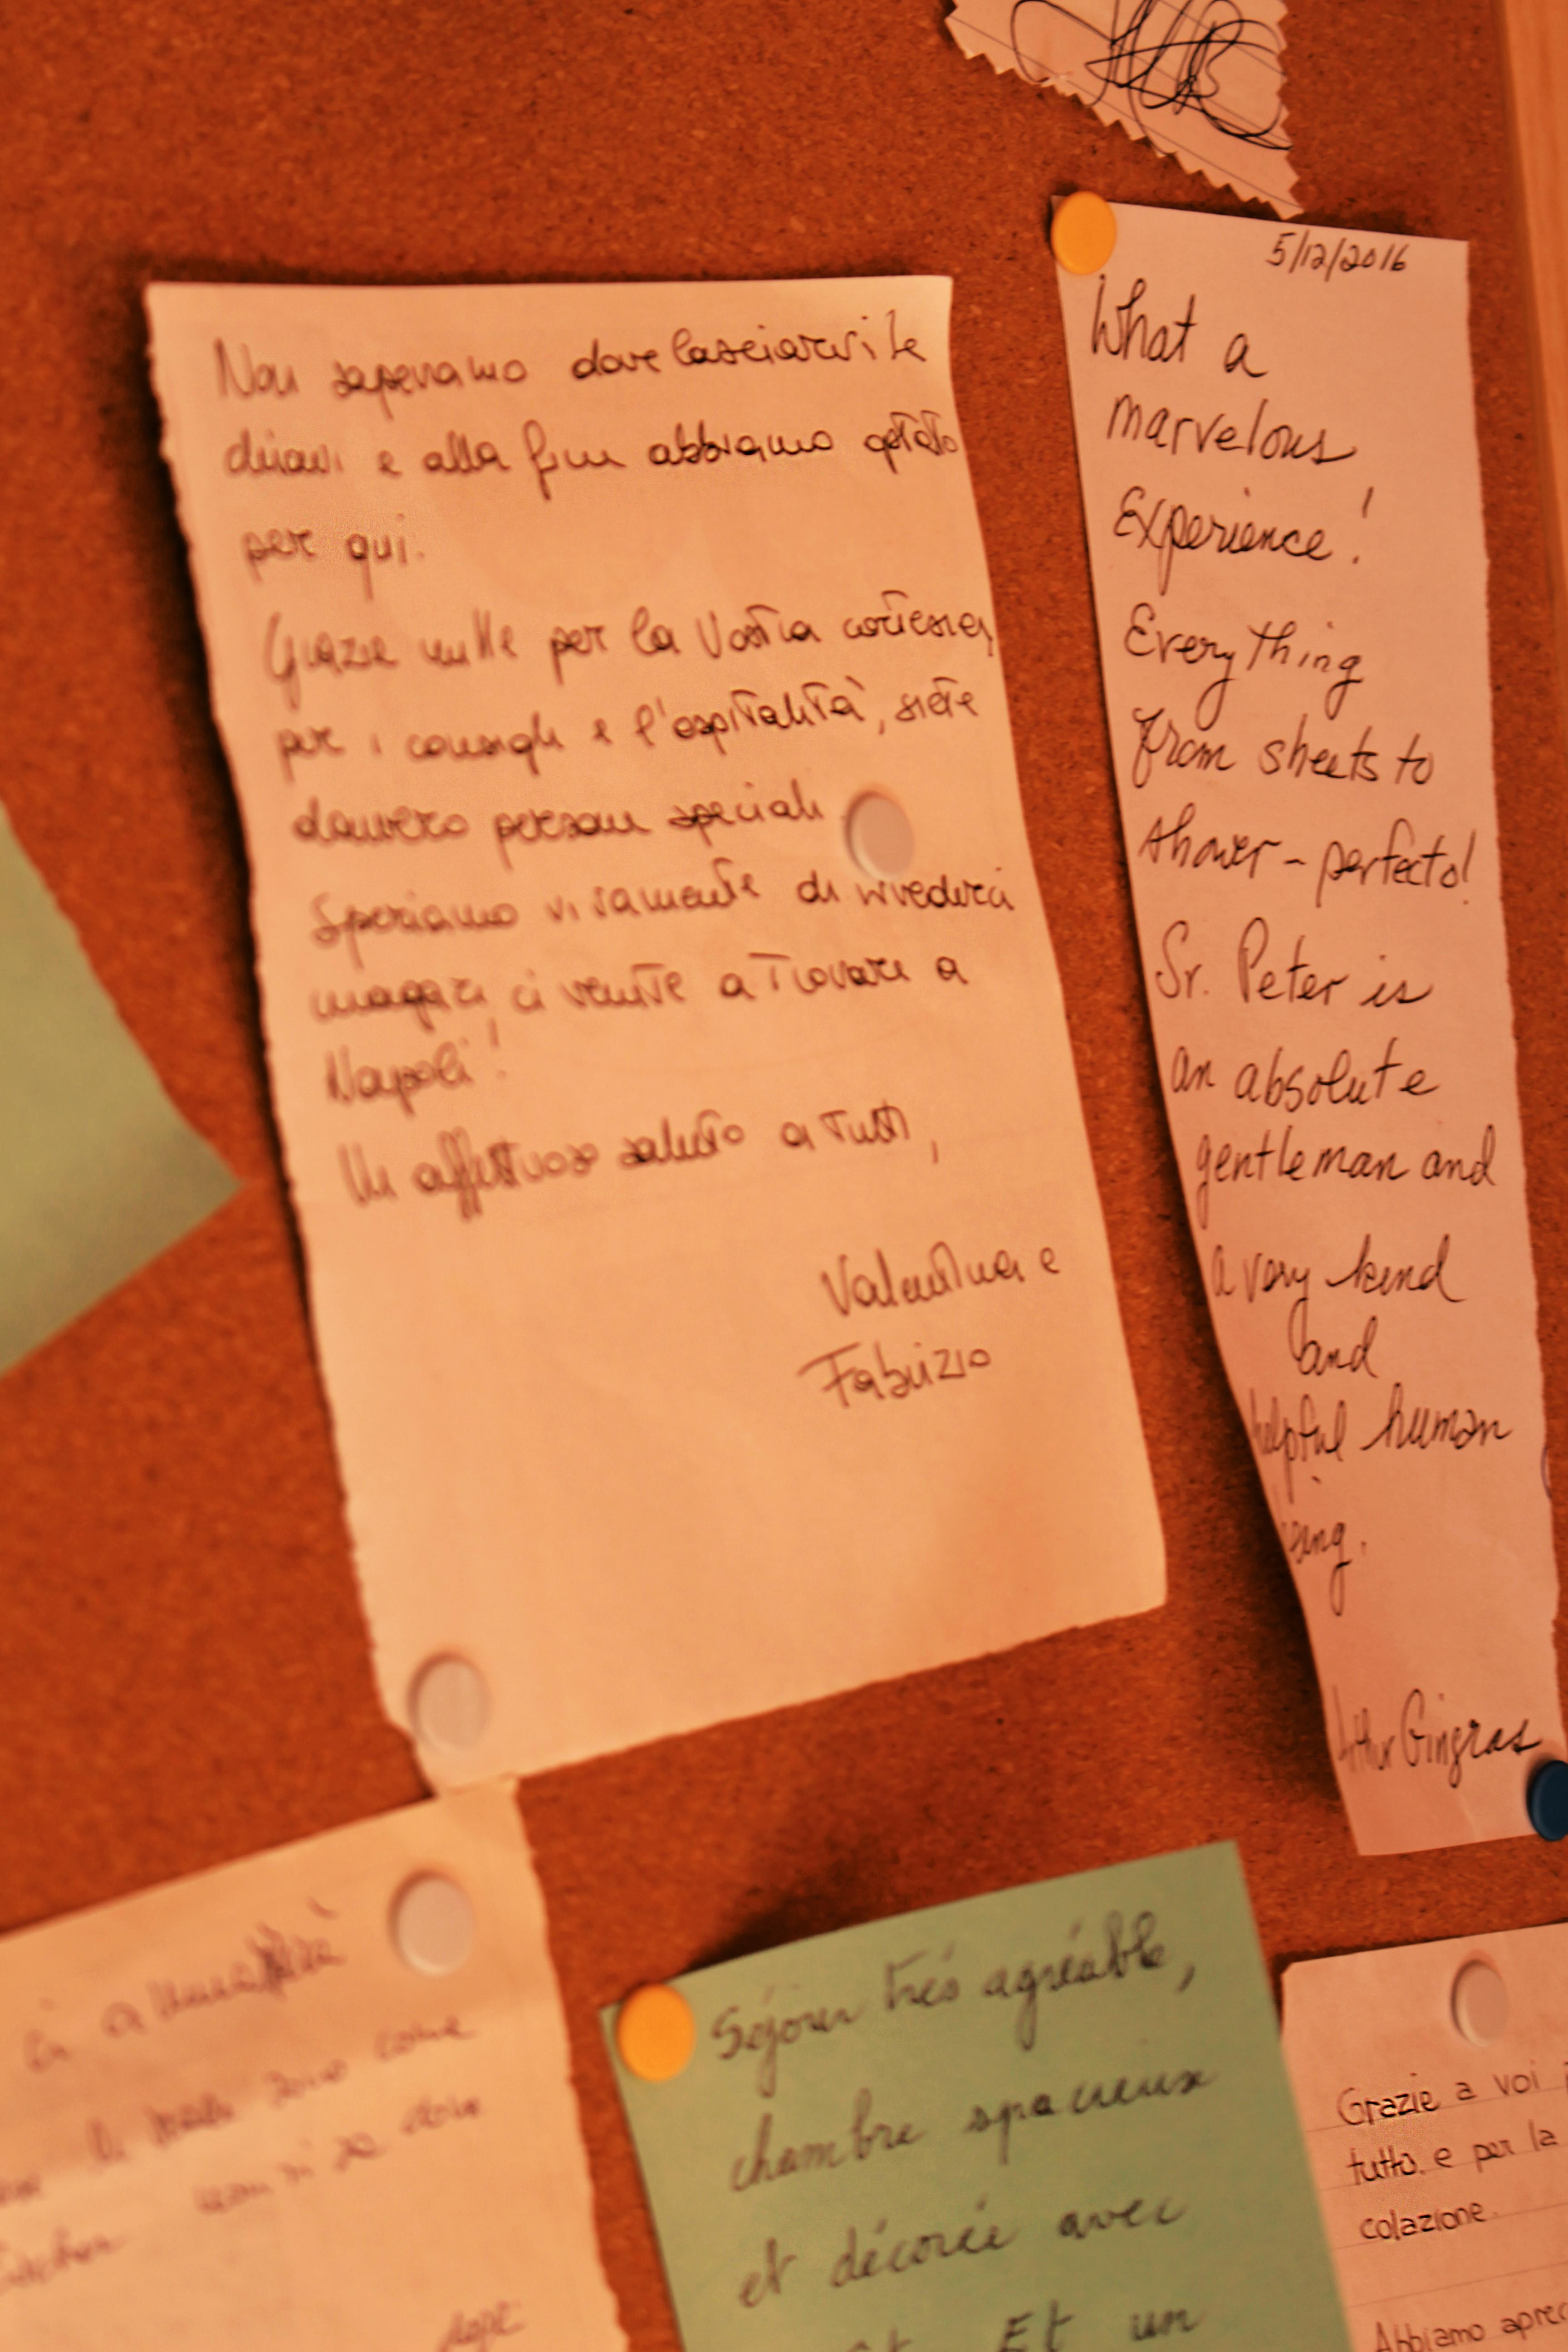 Non sapevamo dove lasciarvi le
chiavi e alla fine abbiamo optato
per qui.
Grazie mille per la Vostra cortesia,
per i consigli e l'ospitalità, siete
davvero persone speciali.
Speriamo vivamente di rivederci
magari ci venite a trovare a
Napoli!
Un affettuoso saluto a tutti,
Valentina e
Fabrizio
5/12/2016
What a
marvelous
Experience!
Everything
from sheets to
shower - perfecto!
Sr. Peter is
an absolute
gentleman and
a very kind
and
helpful human
being.
Arthur Gingras
come
dove
dopo
Séjour très agréable,
chambre spacieuse
et décorée avec
Et un
Grazie a voi
tutto, e per la
colazione.
Abbiamo aprec